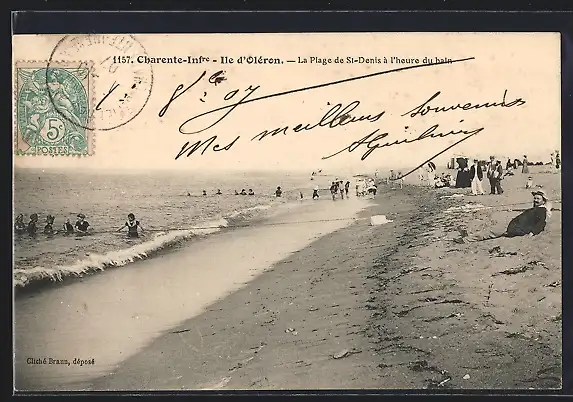 1157. Charente-Infre - Ile d'Oléron. — La Plage de St-Denis à l'heure du bain
5c
POSTES
Mes meilleurs Souvenirs
Cliché Braun, déposé